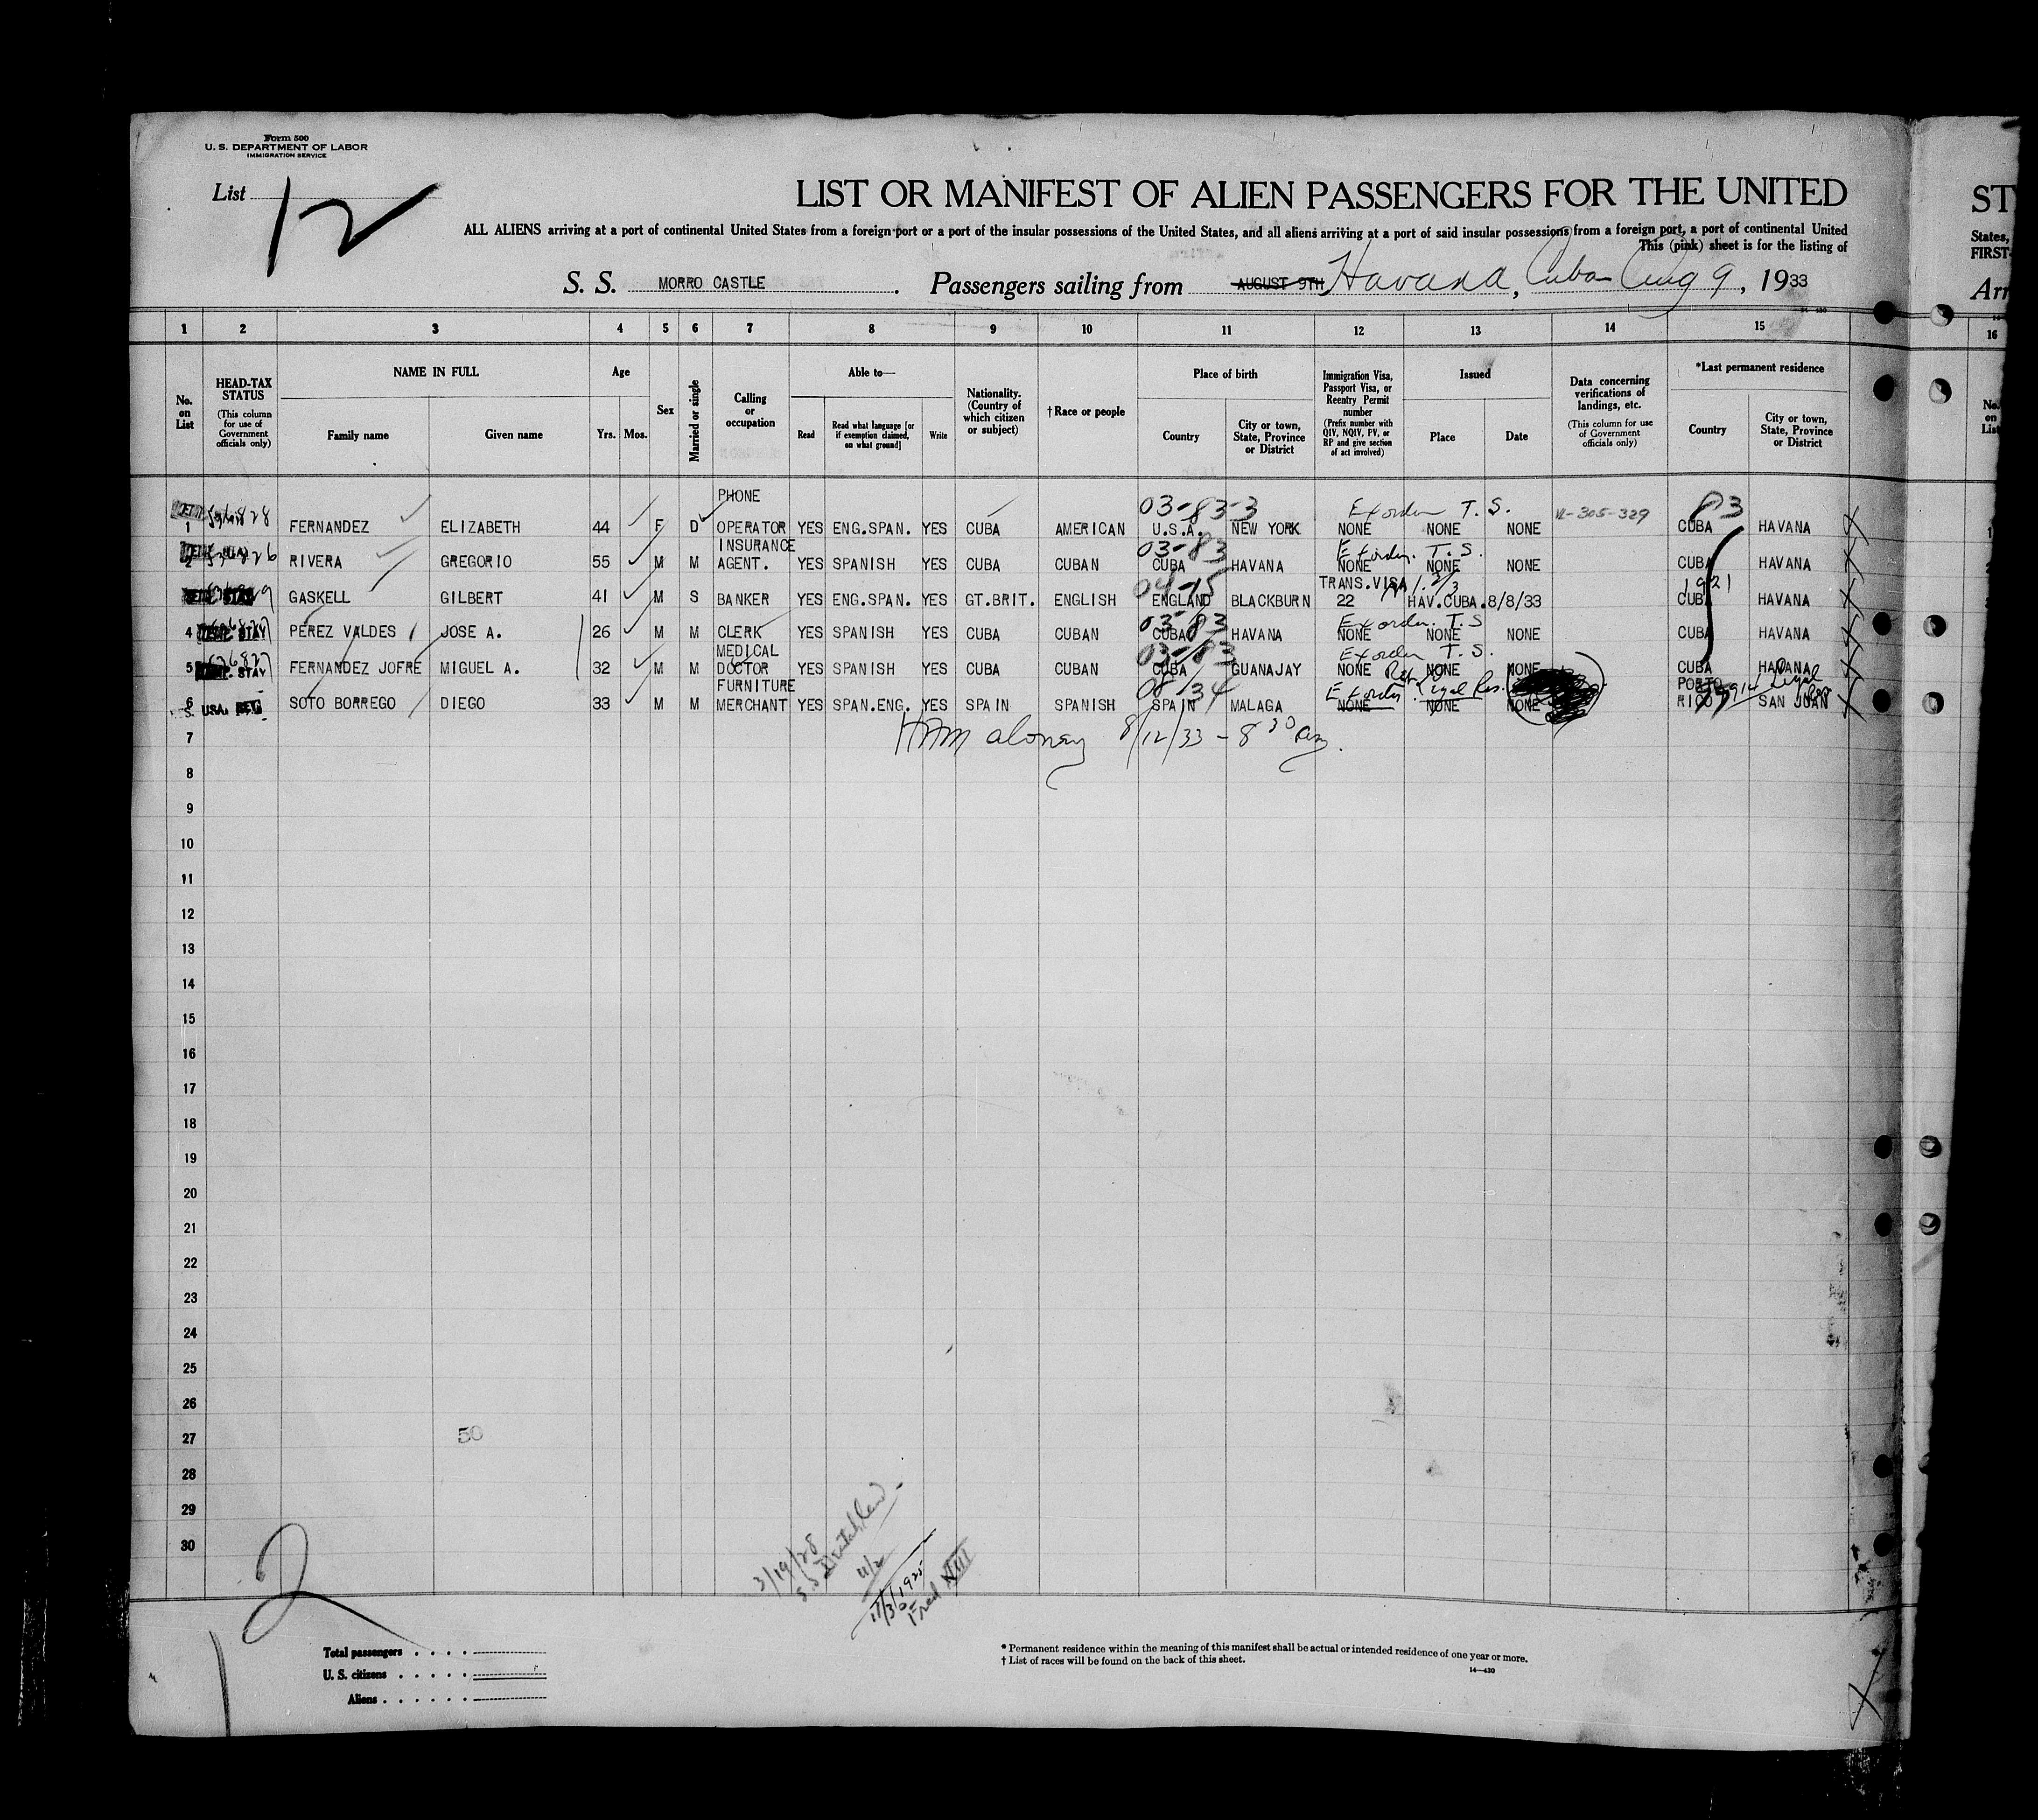 Form 500
U. S. DEPARTMENT OF LABOR
IMMIGRATION SERVICE
List 12
LIST OR MANIFEST OF ALIEN PASSENGERS FOR THE UNITED
ST
ALL ALIENS arriving at a port of continental United States from a foreign port or a port of the insular possessions of the United States, and all aliens arriving at a port of said insular possessions from a foreign port, a port of continental United
States,
This (pink) sheet is for the listing of
FIRST-
S. S. MORRO CASTLE. Passengers sailing from AUGUST 9TH Havana, Cuba Aug 9, 1933
Arr
14-430
1 2 3 4 5 6 7 8 9 10 11 12 13 14 15 16
No. on List
HEAD-TAX STATUS (This column for use of Government officials only)
NAME IN FULL
Family name Given name
Age
Yrs. Mos.
Sex
Married or single
Calling or occupation
Able to—
Read Read what language [or if exemption claimed, on what ground] Write
Nationality. (Country of which citizen or subject)
† Race or people
Place of birth
Country City or town, State, Province or District
Immigration Visa, Passport Visa, or Reentry Permit number (Prefix number with QIV, NQIV, PV, or RP and give section of act involved)
Issued
Place Date
Data concerning verifications of landings, etc. (This column for use of Government officials only)
*Last permanent residence
Country City or town, State, Province or District
No. on List
PHONE 03-83-3 Ex order T. S. 12-305-329 83
1 FERNANDEZ ELIZABETH 44 F D OPERATOR YES ENG.SPAN. YES CUBA AMERICAN U.S.A. NEW YORK NONE NONE NONE CUBA HAVANA
INSURANCE 03-83 Ex order. T. S.
2 RIVERA GREGORIO 55 M M AGENT. YES SPANISH YES CUBA CUBAN CUBA HAVANA NONE NONE NONE CUBA HAVANA
04-15 TRANS.VISA 1921
GASKELL GILBERT 41 M S BANKER YES ENG.SPAN. YES GT.BRIT. ENGLISH ENGLAND BLACKBURN 22 HAV.CUBA. 8/8/33 CUBA HAVANA
03-83 Ex order. T. S
4 TEMP. STAY PEREZ VALDES JOSE A. 26 M M CLERK YES SPANISH YES CUBA CUBAN CUBA HAVANA NONE NONE NONE CUBA HAVANA
MEDICAL 03-83 Ex order T. S.
5 STAY FERNANDEZ JOFRE MIGUEL A. 32 M M DOCTOR YES SPANISH YES CUBA CUBAN CUBA GUANAJAY NONE NONE NONE CUBA HAVANA
FURNITURE 08-34 Ex order Ret. Legal Res. PORTO Legal
6 USA. SOTO BORREGO DIEGO 33 M M MERCHANT YES SPAN.ENG. YES SPAIN SPANISH SPAIN MALAGA NONE NONE NONE RICO SAN JUAN
7 8/12/33 - 8 30 am.
8
9
10
11
12
13
14
15
16
17
18
19
20
21
22
23
24
25
26
27 50
28
29
30
3/19/28
S.S.
11/2
11/3/1925
Fred VIII
2
Total passengers
U. S. citizens
Aliens
* Permanent residence within the meaning of this manifest shall be actual or intended residence of one year or more.
† List of races will be found on the back of this sheet.
14—430